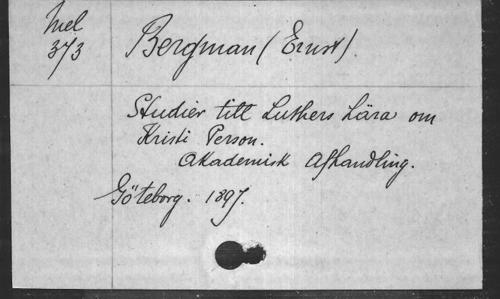 Mel
373
Bergman (Ernst).
Studier till Luthers Lära om
Kristi Person.
Akademisk Afhandling.
Göteborg. 1897.